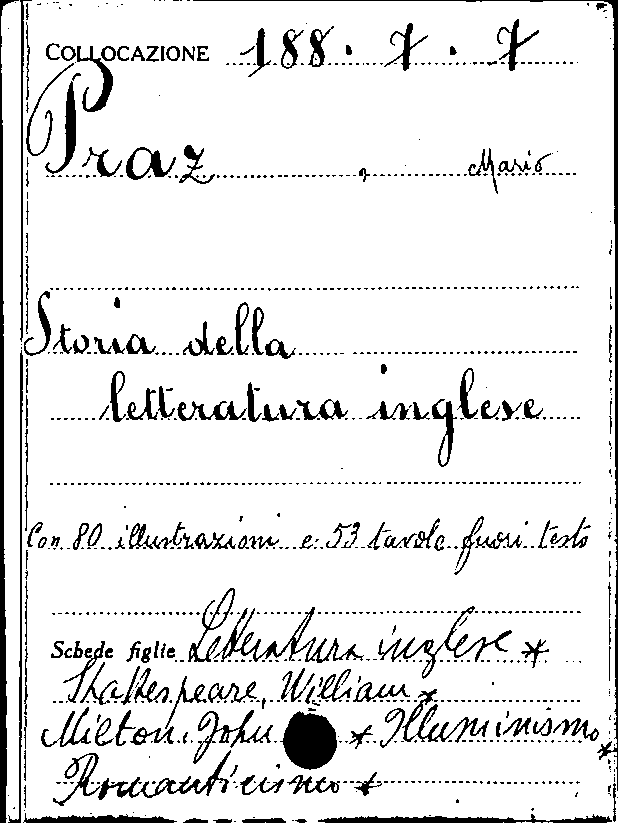 COLLOCAZIONE 188 . 7 . 7
Praz , Mario
Storia della
letteratura inglese
Con 80 illustrazioni e 53 tavole fuori testo
Schede figlie Letteratura inglese *
Shakespeare, William *
Milton, John * Illuminismo *
Romanticismo *